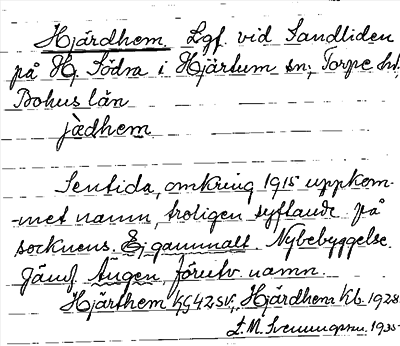 Hjärdhem, Lgf. vid Sandliden
på H. Södra i Hjärtum sn; Torpe hd,
Bohus län
jàdhem
Sentida, omkring 1915 uppkom-
-met namn, troligen syftande på
socknens. Ej gammalt. Nybebyggelse.
Jämf. Ängen, förutv. namn.
Hjärthem Kg 42 SV, Hjärdhem Kb. 1928.
M. Svenungsson. 1935